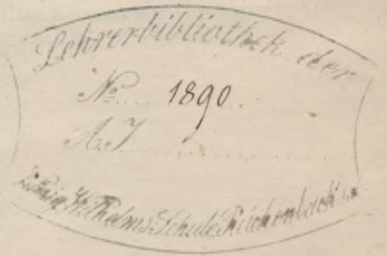 Lehrerbibliothek der
No. 1890.
A.I
König Wilhelms Schule Reichenbach